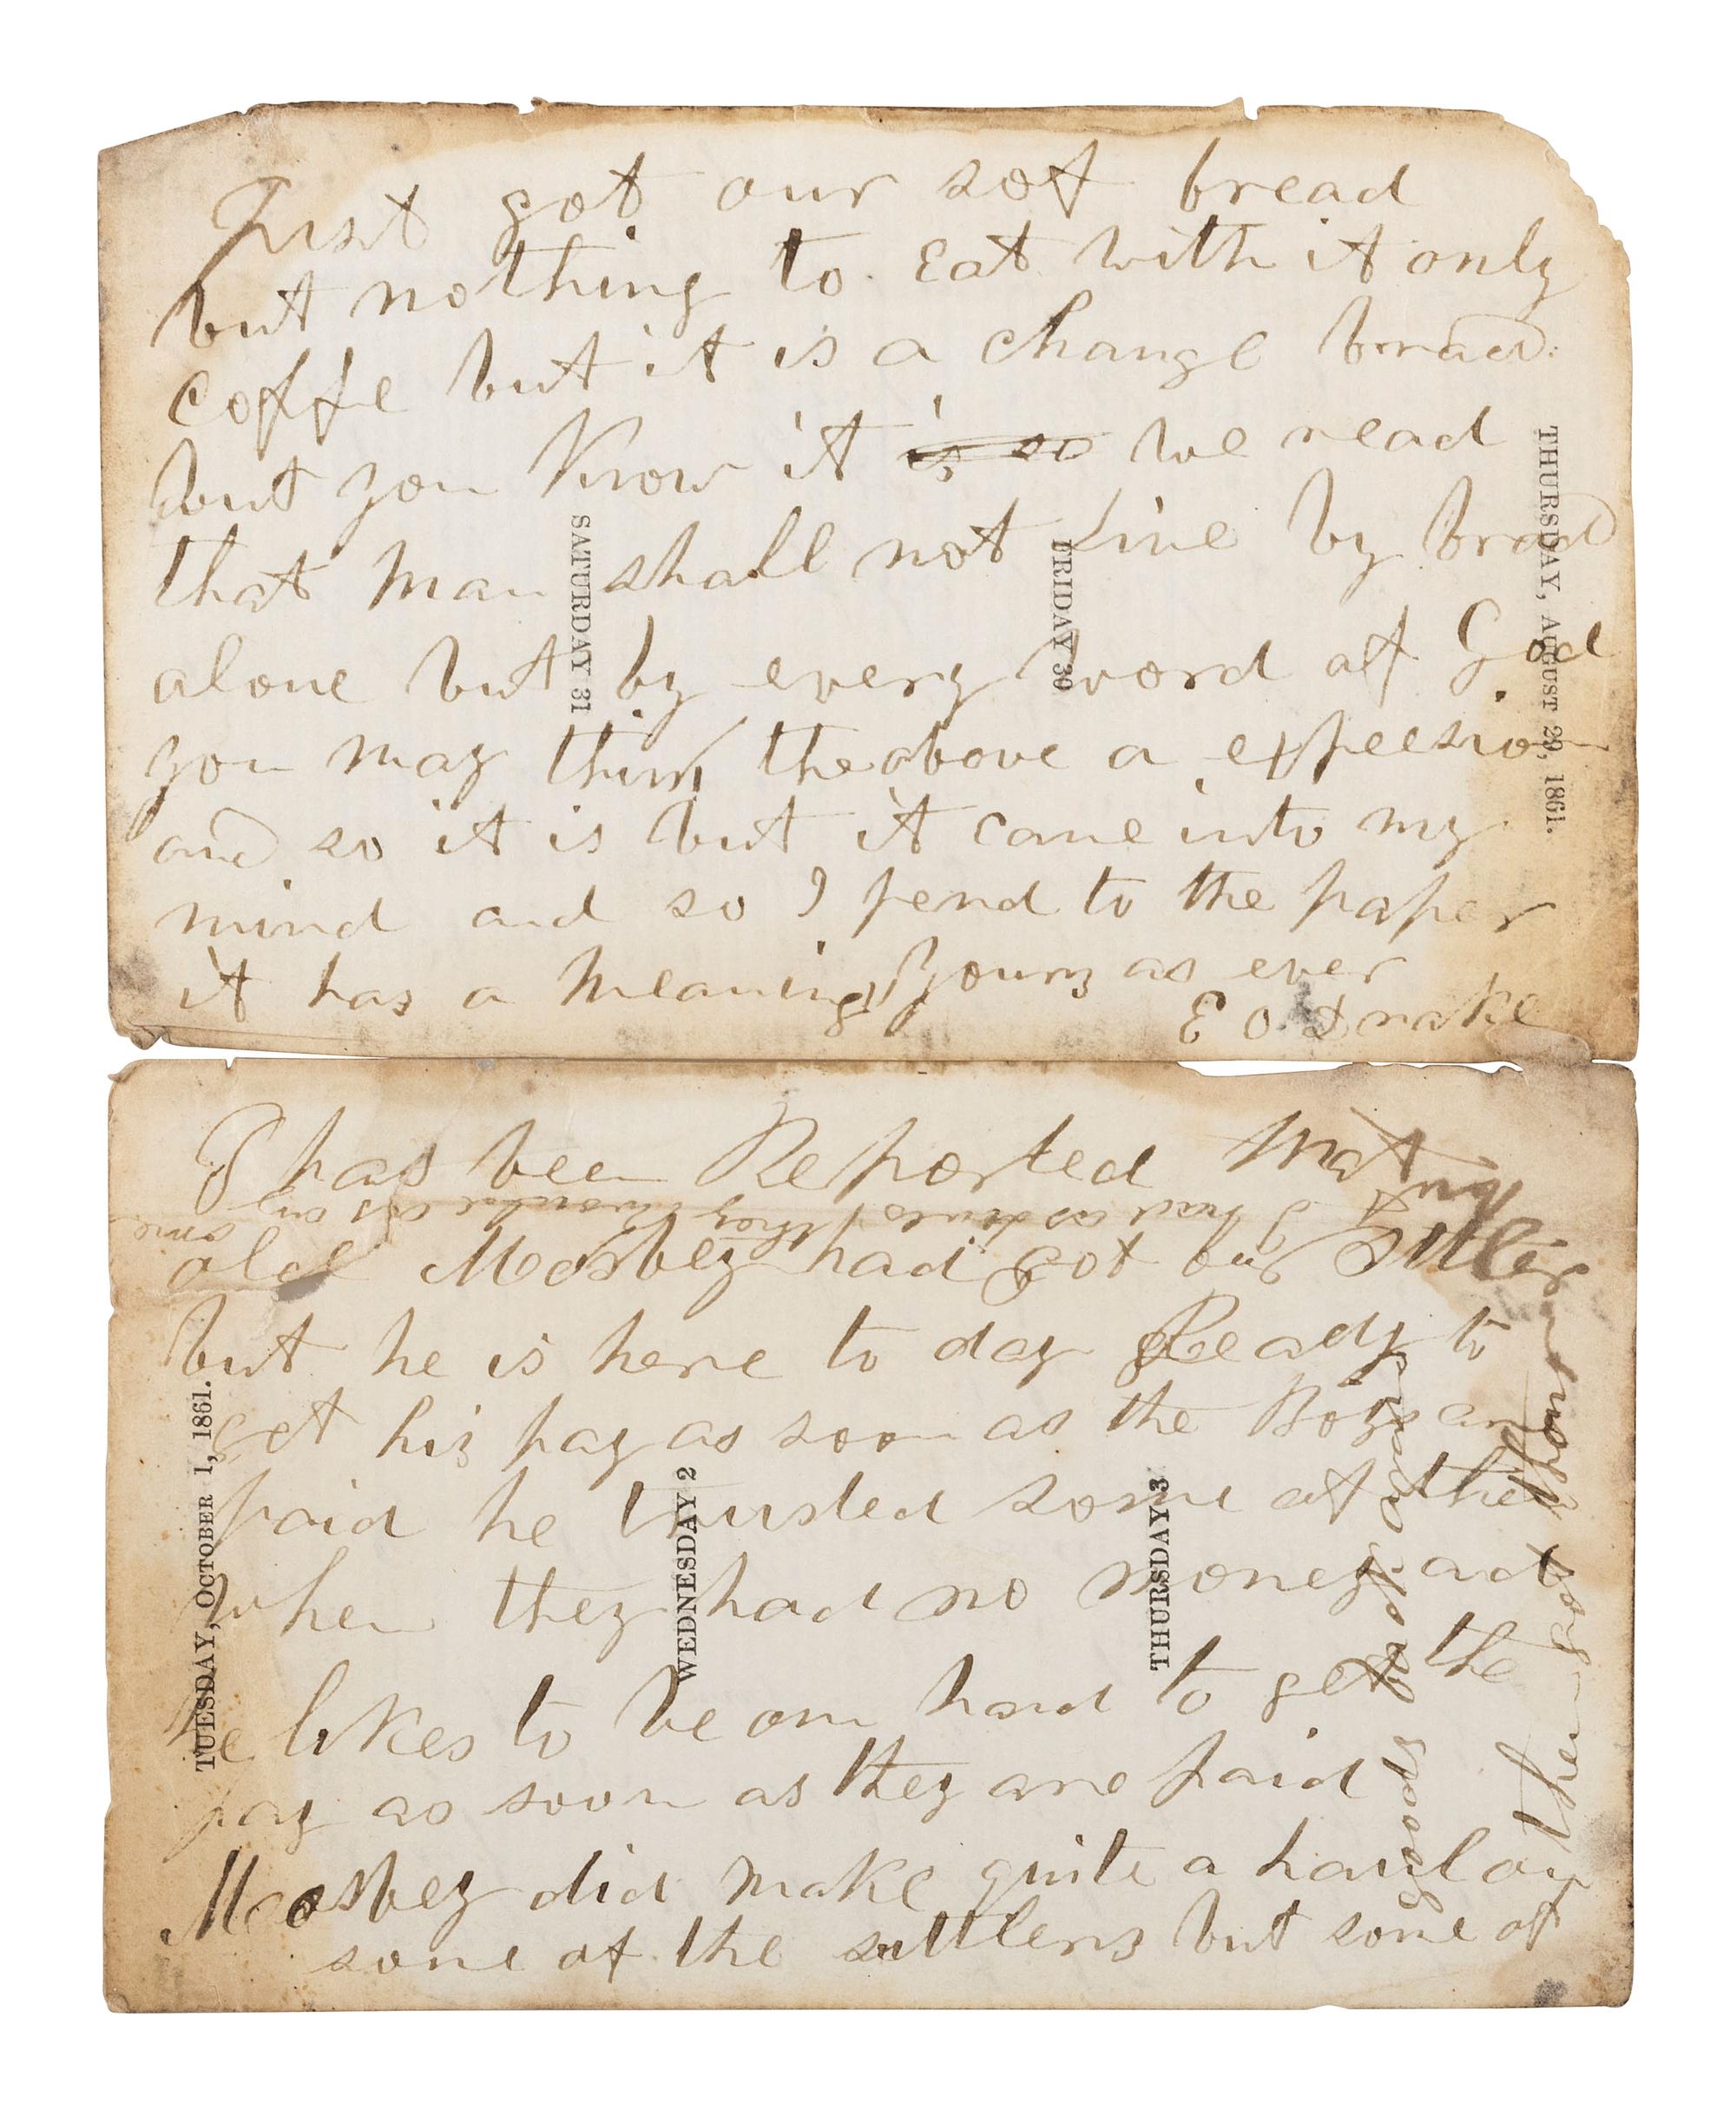 Just got our soft bread
but nothing to Eat with it only
coffe but it is a change bread
but you Know it is so we read
that man shall not Live by bread
alone but by every word of God
you may think the above a
and so it is but it came into my
mind and so I pend to the paper
it has a meaning yours as ever
E O Drake
THURSDAY, AUGUST 29, 1861.
FRIDAY 30
SATURDAY 31
has been Reported that
old Mosbey had got our Sutler
but he is here to day Ready to
get his pay as soon as the Boys are
paid he trusted some of the
when they had no money and
he likes to be on hand to get the
pay as soon as they are paid
Mosbey did make quite a haul on
some of the suttlers but some of
them got
goods
TUESDAY, OCTOBER 1, 1861.
WEDNESDAY 2
THURSDAY 3